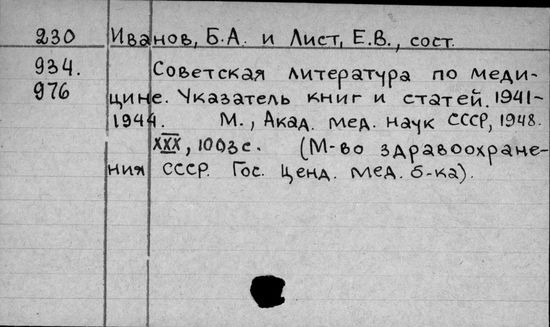 230 Иванов, Б.А. и Лист, Е.В., сост.
934. Советская литература по меди-
976 цине. Указатель книг и статей. 1941-
1944. М., Акад. мед. наук СССР, 1948.
XXX, 1003с. (М-во здравоохране-
ния СССР. Гос. Ценд. мед. б-ка).